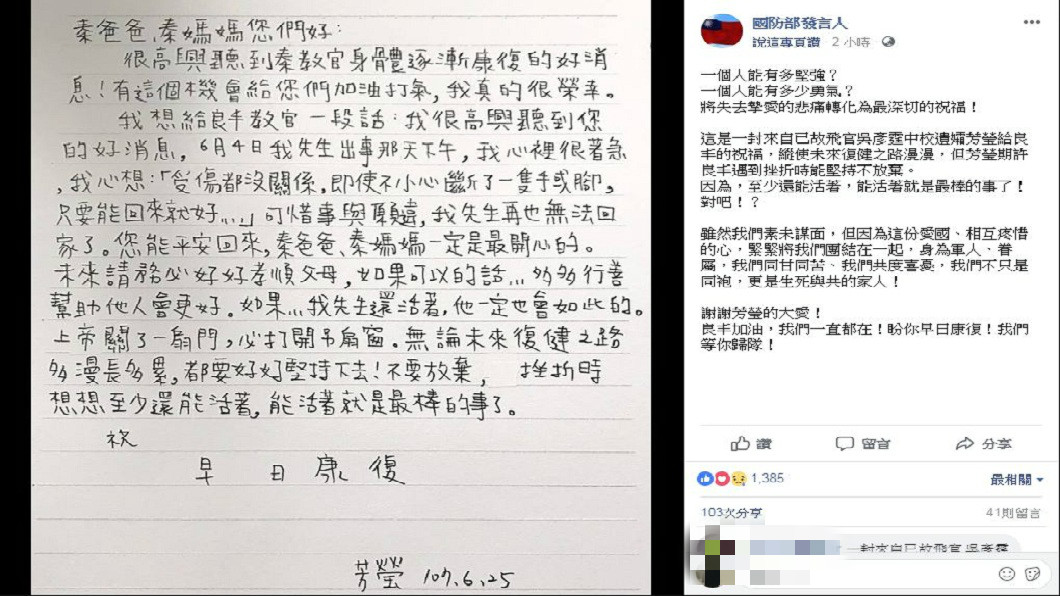 秦爸爸、秦媽媽您們好：
很高興聽到秦教官身體逐漸康復的好消
息！有這個機會給您們加油打氣，我真的很榮幸。
我想給良丰教官一段話：我很高興聽到您
的好消息，6月4日我先生出事那天下午，我心裡很著急
，我心想：「受傷都沒關係，即使不小心斷了一隻手或腳，
只要能回來就好…」可惜事與願違，我先生再也無法回
家了。您能平安回來，秦爸爸、秦媽媽一定是最開心的。
未來請務必好好孝順父母，如果可以的話…多多行善
幫助他人會更好。如果…我先生還活著，他一定也會如此的。
上帝關了一扇門，必打開另扇窗。無論未來復健之路
多漫長多累，都要好好堅持下去！不要放棄， 挫折時
想想至少還能活著，能活著就是最棒的事了。
祝
早日康復
芳瑩 107.6.25
國防部發言人
說這專頁讚 2 小時
一個人能有多堅強？
一個人能有多少勇氣？
將失去摯愛的悲痛轉化為最深切的祝福！
這是一封來自已故飛官吳彥霆中校遺孀芳瑩給良
丰的祝福，縱使未來復健之路漫漫，但芳瑩期許
良丰遇到挫折時能堅持不放棄。
因為，至少還能活着，能活着就是最棒的事了！
對吧！？
雖然我們素未謀面，但因為這份愛國、相互疼惜
的心，緊緊將我們團結在一起，身為軍人、眷
屬，我們同甘同苦、我們共度喜憂，我們不只是
同袍，更是生死與共的家人！
謝謝芳瑩的大愛！
良丰加油，我們一直都在！盼你早日康復！我們
等你歸隊！
讚 留言 分享
1,385 最相關
103次分享 41則留言
一封來自已故飛官吳彥霆